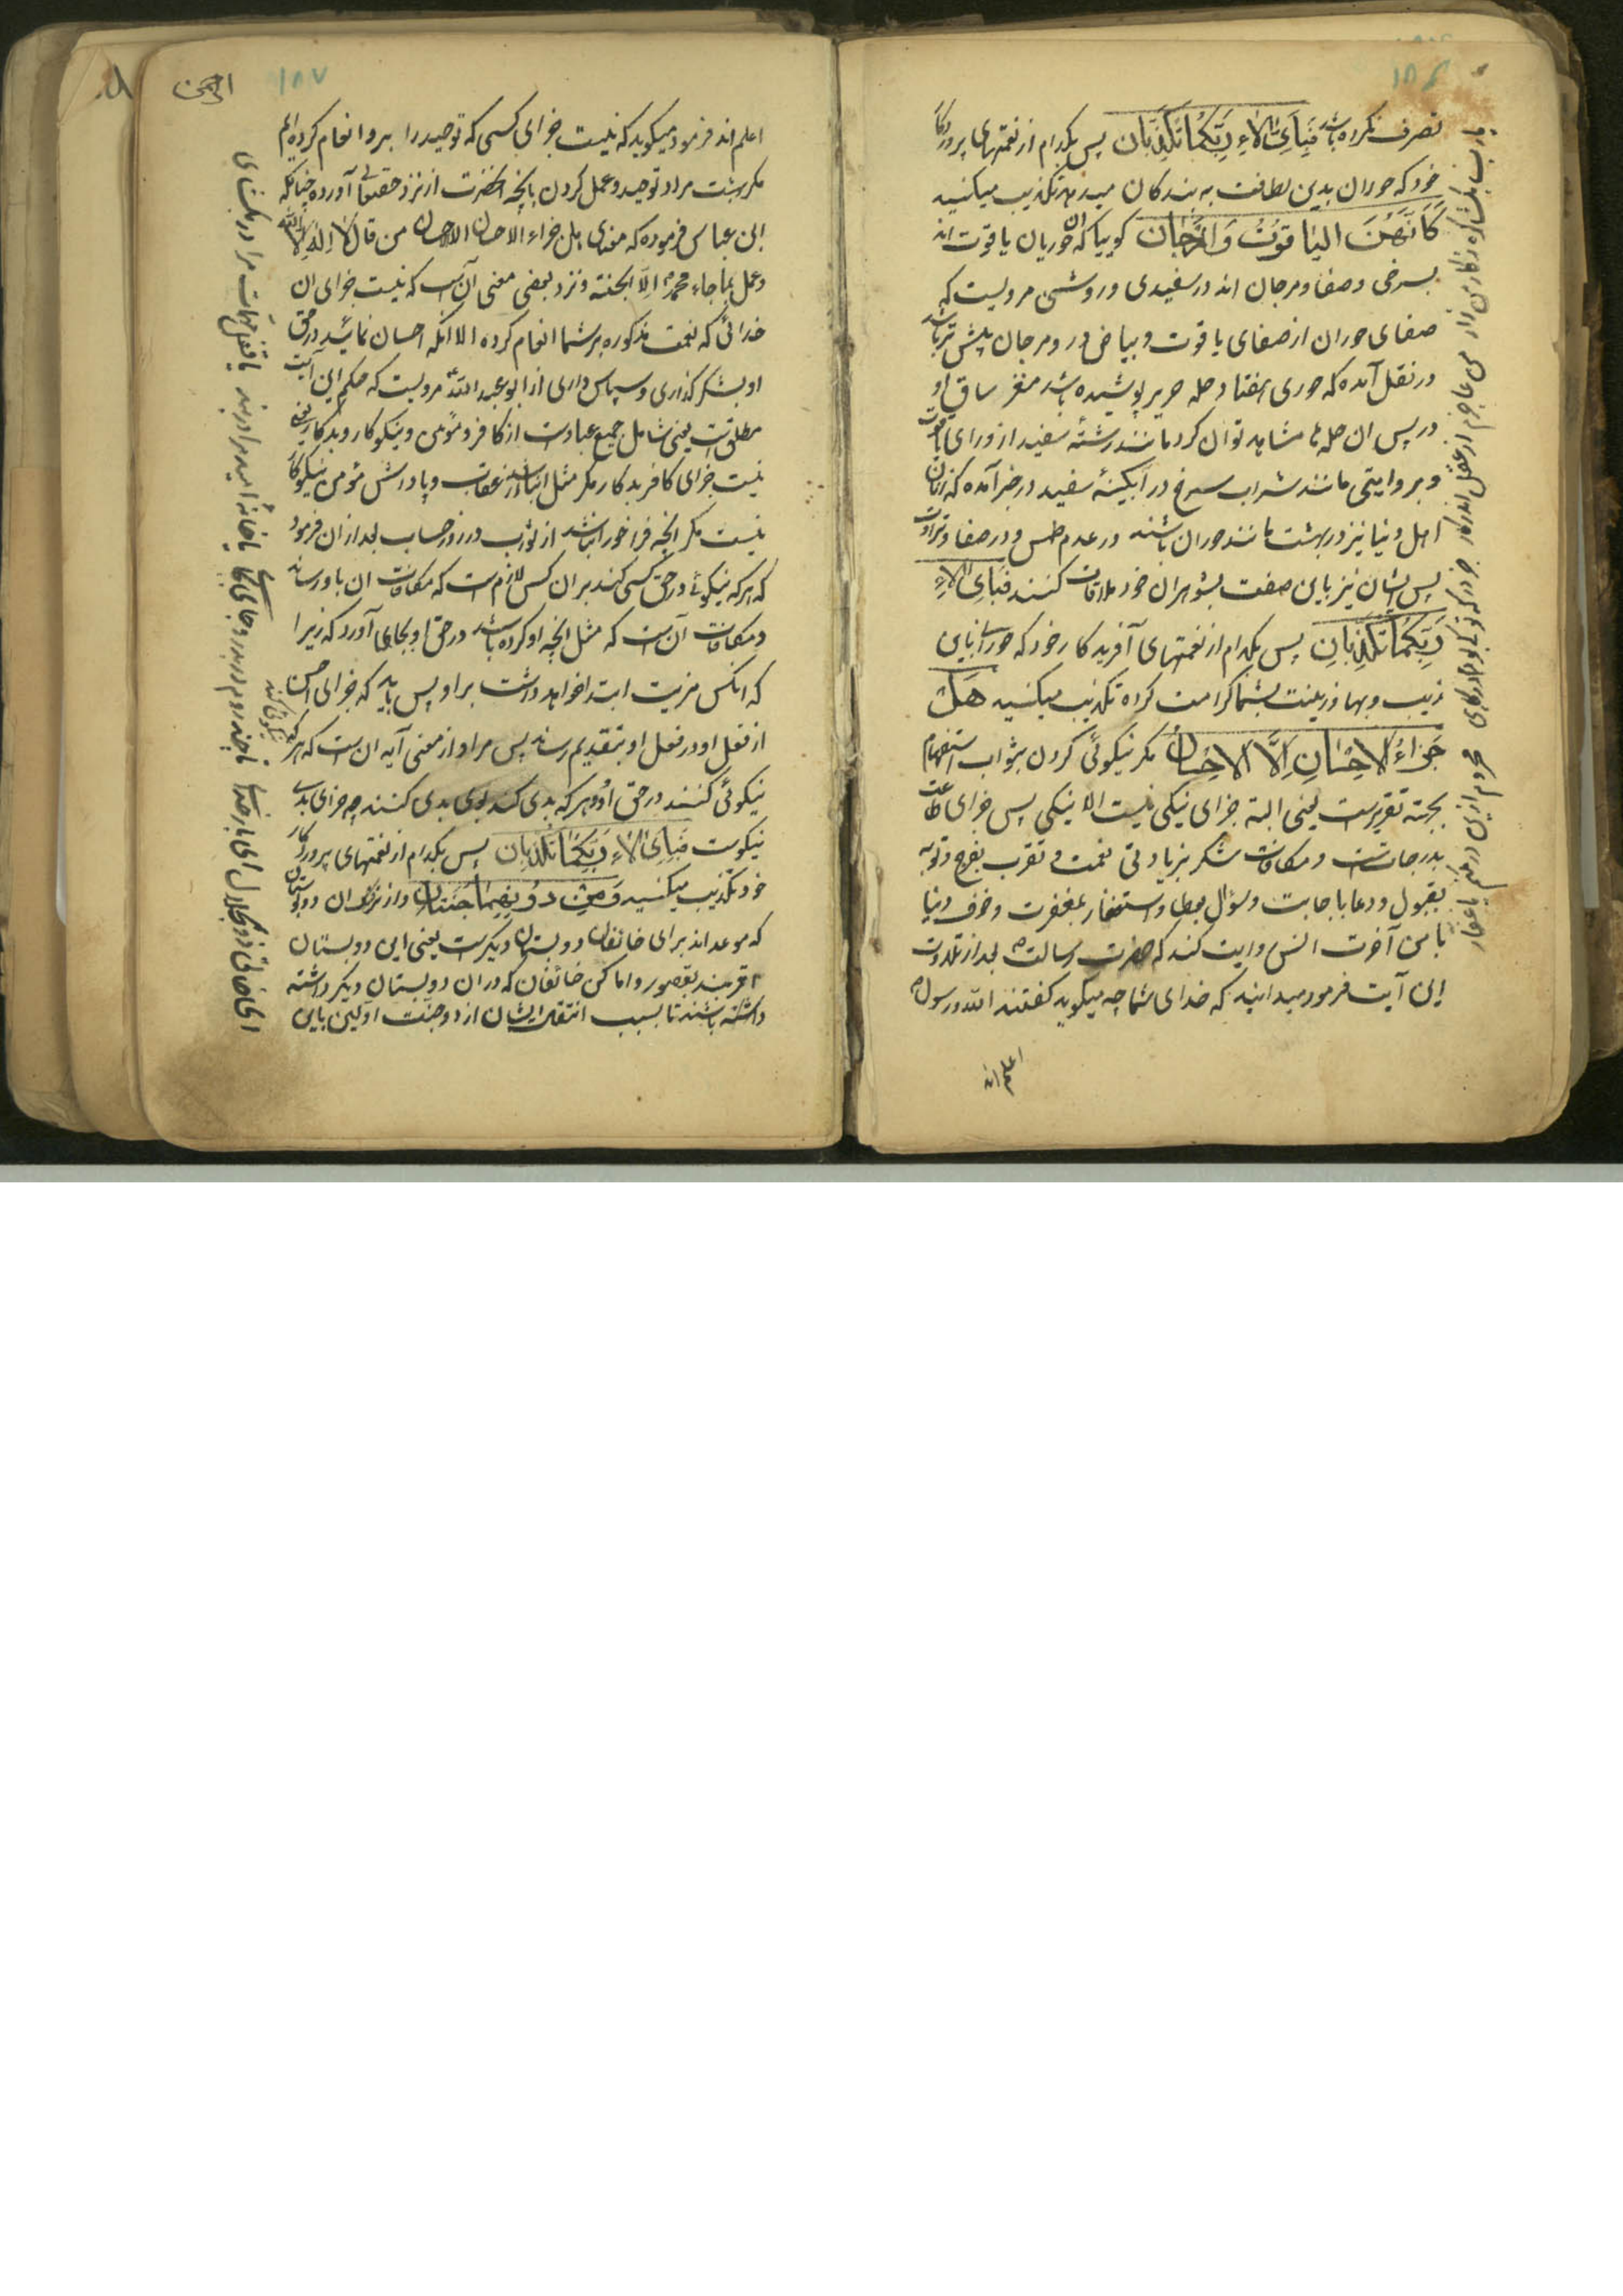 تصرف نکرده باشد فَبِاَیِّ اٰلاءِ رَبِّکُمٰا تُکَذِّبٰان پس بکدام از نعمتهای پروردکار
خود که حوران بدین لطافت به بندکان میدهد تکذیب میکنید
کَاَنَّهُنَّ الیٰاقوُتُ وَالمَرْجٰان کوییا که ان حوریان یاقوت اند
بسرخی و صفا و مرجان اند در سفیدی و روشنی مرویست که
صفای حوران از صفای یاقوت و بیاض در و مرجان بیش تر باشد
در نقل آمده که حوری هفتاد حله حریر پوشیده باشد مغز ساق او
در پس ان حله ها مشاهد توان کرد مانند رشتهٔ سفید از ورای یاقوت
و بروایتی مانند شراب سرخ در آبکینهٔ سفید در خبر آمده که زنان
اهل دنیا نیز در بهشت مانند حوران باشند در عدم طمس و در صفا و طراوت
پس ایشان نیز باین صفت بشوهران خود ملاقات کنند فَبِاَیِّ اٰلاءِ
رَبِّکُمٰا تُکَذِّبٰانِ پس بکدام از نعمتهای آفریدکار خود که حورانرا باین
زیب و بها و زینت بشما کرامت کرده تکذیب میکنید هَلْ
جَزٰاءُ الاِحْسٰانِ اِلَّا الاِحْسٰانُ مکر نیکوئی کردن بثواب استفهام
بجهته تقریرست یعنی البته جزای نیکی نیست الا نیکی پس جزای طاعت
بدرجاتست و مکافات شکر بزیادتی نعمت و تقرب بفرح و توبه
بقبول و دعا باجابت و سؤال بعطا و استغفار بمغفرت و خوف دنیا
بامن آخرت انس روایت کند که حضرت رسالت ص بعد از تلاوت
این آیت فرمود میدانید که خدای شما چه میکوید کفتند الله و رسوله
اعلم اند
الرحمن
۱۸۷
اعلم اند فرمود میکوید که نیست جزای کسی که توحید را برو انعام کرده ایم
مکر بهشت مراد توحید و عمل کردن بانچه آنحضرت از نزد حقتعالی آورده چنانکه
ابن عباس فرموده که معنی هل جزاء الاحسان الا الاحسان من قال لا اله الا الله
و عمل بما جاء محمد ص اِلَّا الجنته و نزد بعضی معنی آن است که نیست جزای ان
خدائی که نعمت مذکوره بر شما انعام کرده الا انکه احسان نمائید در حق
او بشکر کذاری و سپاس داری از ابو عبد الله ع مرویست که حکم این آیت
مطلق است یعنی شامل جمیع عبادست از کافر و مؤمن و نیکوکار و بدکار یعنی
نیست جزای کافر بدکار مکر مثل ان باشد از عقاب و پاداش مؤمن نیکوکار
نیست مکر انچه فراخور ان باشد از ثواب در روز حساب بعد از ان فرمود
که هر که نیکوئی در حق کسی کند بران کس لازم است که مکافات ان باو رساند
و مکافات آن ست که مثل انچه او کرده باشد در حق او بجای آورد که زیرا
که انکس مزیت ابتدا خواهد داشت براو پس باید که جزای احسن
از فعل او در فعل او بتقدیم رساند پس مراد از معنی آیه ان ست که هر که
نیکوئی کند
نیکوئی کنند در حق او و هر که بدی کند بوی بدی کنند چه جزای بدی
نیکوست فَبِاَیِّ اٰلاءِ رَبِّکُمٰا تُکَذِّبٰانِ پس بکدام از نعمتهای پروردکار
خود تکذیب میکنید وَمِنْ دوُنِهِمٰا جَنَّتٰانِ و از نزدیک ان دو بوستان
که موعد اند برای خائفان دو بستان دیکرست یعنی این دو بستان
اقربند بقصور و اماکن خائفان که دران دو بستان دیکر داشته
داشته باشند تا بسبب انتقال ایشان از دو جنت اولین باین